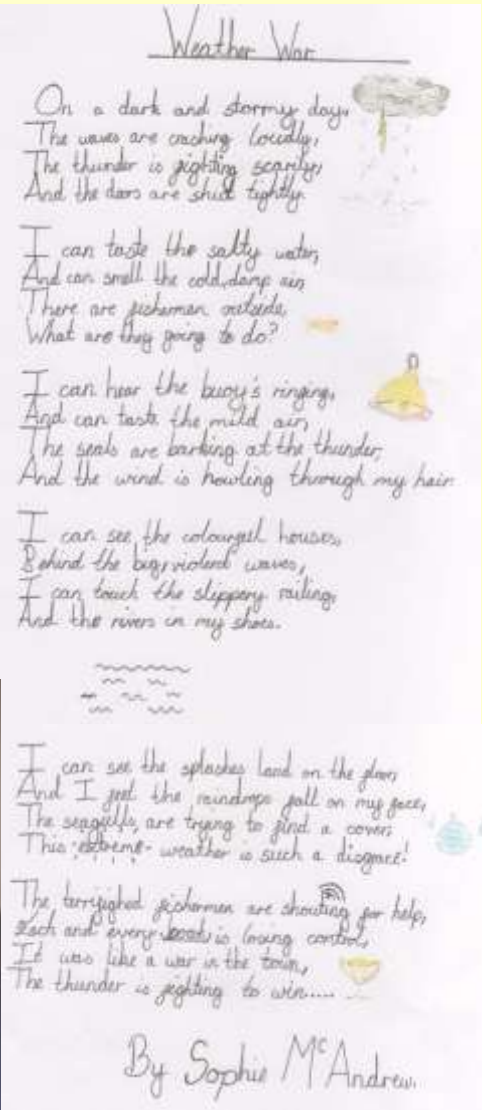 Weather War
On a dark and stormy day,
The waves are crashing loudly,
The thunder is fighting scarily,
And the doors are shut tightly.
I can taste the salty water,
And can smell the cold,damp air,
There are fishermen outside,
What are they going to do?
I can hear the buoy's ringing,
And can taste the mild air,
The seals are barking at the thunder,
And the wind is howling through my hair.
I can see the colourgull houses,
Behind the big,violent waves,
I can touch the slippery railing,
And the rivers in my shoes.
I can see the splashes land on the floor,
And I feel the raindrops fall on my face,
The seagulls, are trying to find a cover,
This extreme weather is such a disgrace!
The terrifighed fishermen are shouting for help,
Each and every boat, is losing control,
It was like a war in the town,
The thunder is fighting to win.....
By Sophie McAndrew.